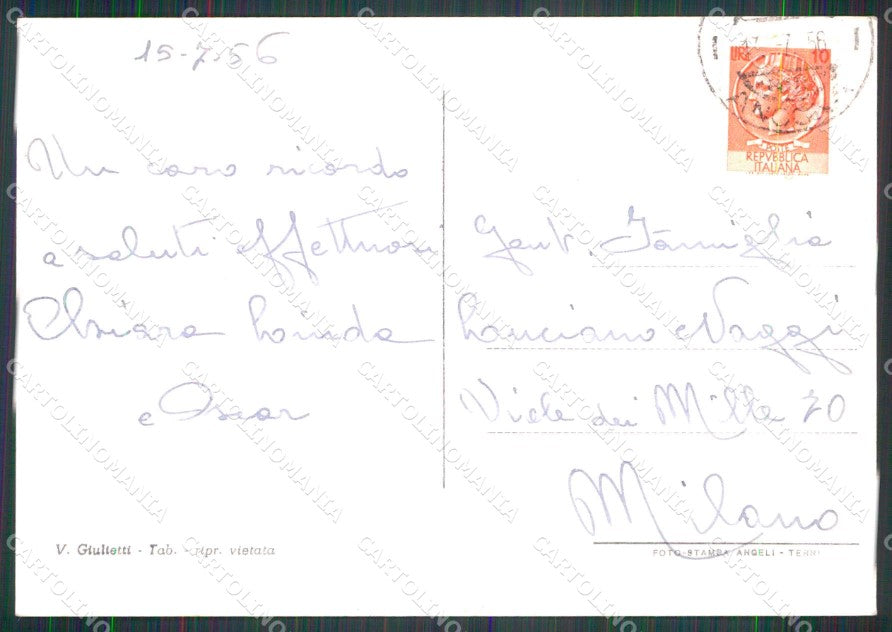 15-7-56
Un caro ricordo
e saluti affettuosi
Chiara Lorida
e Oscar
LIRE 10
POSTE
REPVBBLICA
ITALIANA
Gent. Famiglia
Lanciano Naggi
Viale dei Mille 70
Milano
V. Giulietti - Tab. - ripr. vietata
FOTO-STAMPA ANGELI - TERNI
CARTOLINOMANIA